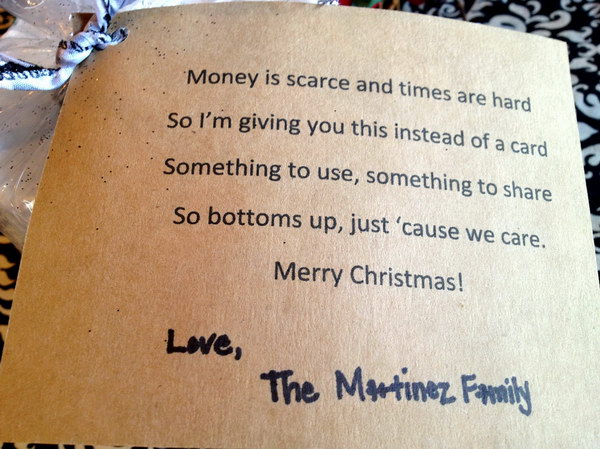 Money is scarce and times are hard
So I'm giving you this instead of a card
Something to use, something to share
So bottoms up, just ‘cause we care.
Merry Christmas!
Love,
The Martinez Family